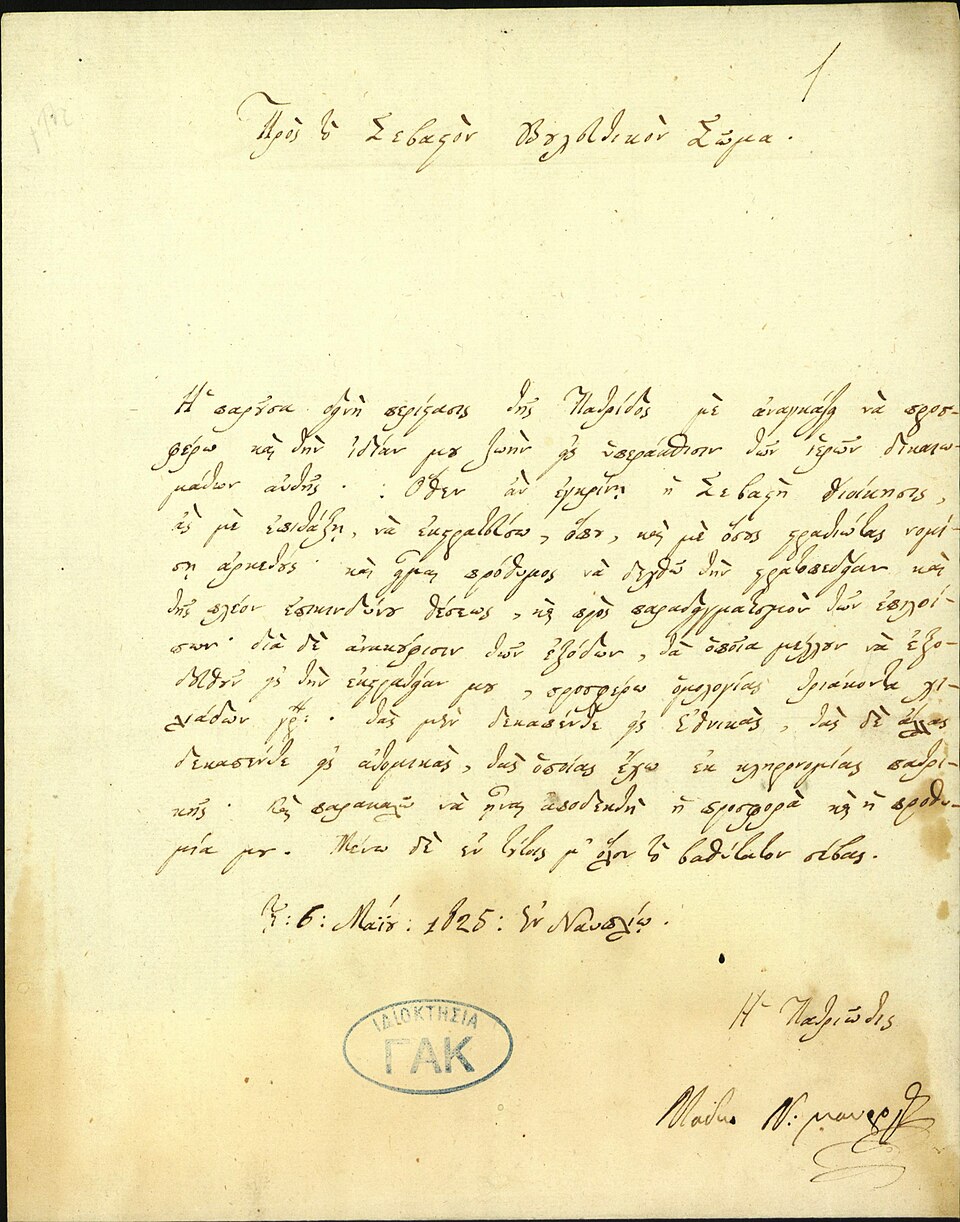 1
Πρὸς τὸ Σεβαστὸν Βουλευτικὸν Σῶμα.
Ἡ παροῦσα δεινὴ περίστασις τῆς Πατρίδος μὲ ἀναγκάζει νὰ προσ-
φέρω καὶ τὴν ἰδίαν μου ζωὴν εἰς ὑπεράσπισιν τῶν ἱερῶν δικαιω-
μάτων αὐτῆς· : Ὅθεν ἂν ἐγκρίνῃ ἡ Σεβαστὴ Διοίκησις,
ἂς μὲ ἐπιτάξῃ, νὰ ἐκστρατεύσω, ὅπου, καὶ μὲ ὅσους στρατιώτας νομί-
σῃ ἀρκετούς· καὶ εἶμαι πρόθυμος νὰ δεχθῶ τὴν ἐκστρατείαν καὶ
τῆς πλέον ἐπικινδύνου θέσεως, καὶ πρὸς παραδειγματισμὸν τῶν ἐπιλοί-
πων· διὰ δὲ ἀνακούφισιν τῶν ἐξόδων, τὰ ὁποῖα μέλλουν νὰ ἐξο-
δευθοῦν εἰς τὴν ἐκστρατείαν μου, προσφέρω ὁμολογίας τριάκοντα χι-
λιάδων γρ: . τὰς μὲν δεκαπέντε εἰς Ἐθνικὰς, τὰς δὲ ἄλλας
δεκαπέντε εἰς ἀτομικὰς, τὰς ὁποίας ἔχω ἐκ κληρονομίας πατρι-
κῆς· καὶ παρακαλῶ νὰ ᾖναι ἀποδεκτὴ ἡ προσφορὰ καὶ ἡ προθυ-
μία μου. Μένω δὲ ἐν τούτοις μ' ὅλον τὸ βαθύτατον σέβας.
Τῇ: 6: Μαΐου: 1825: Ἐν Ναυπλίῳ.
Ἡ Πατριῶτις
Μαδω Ν: μαυρογένους
ΙΔΙΟΚΤΗΣΙΑ
ΓΑΚ